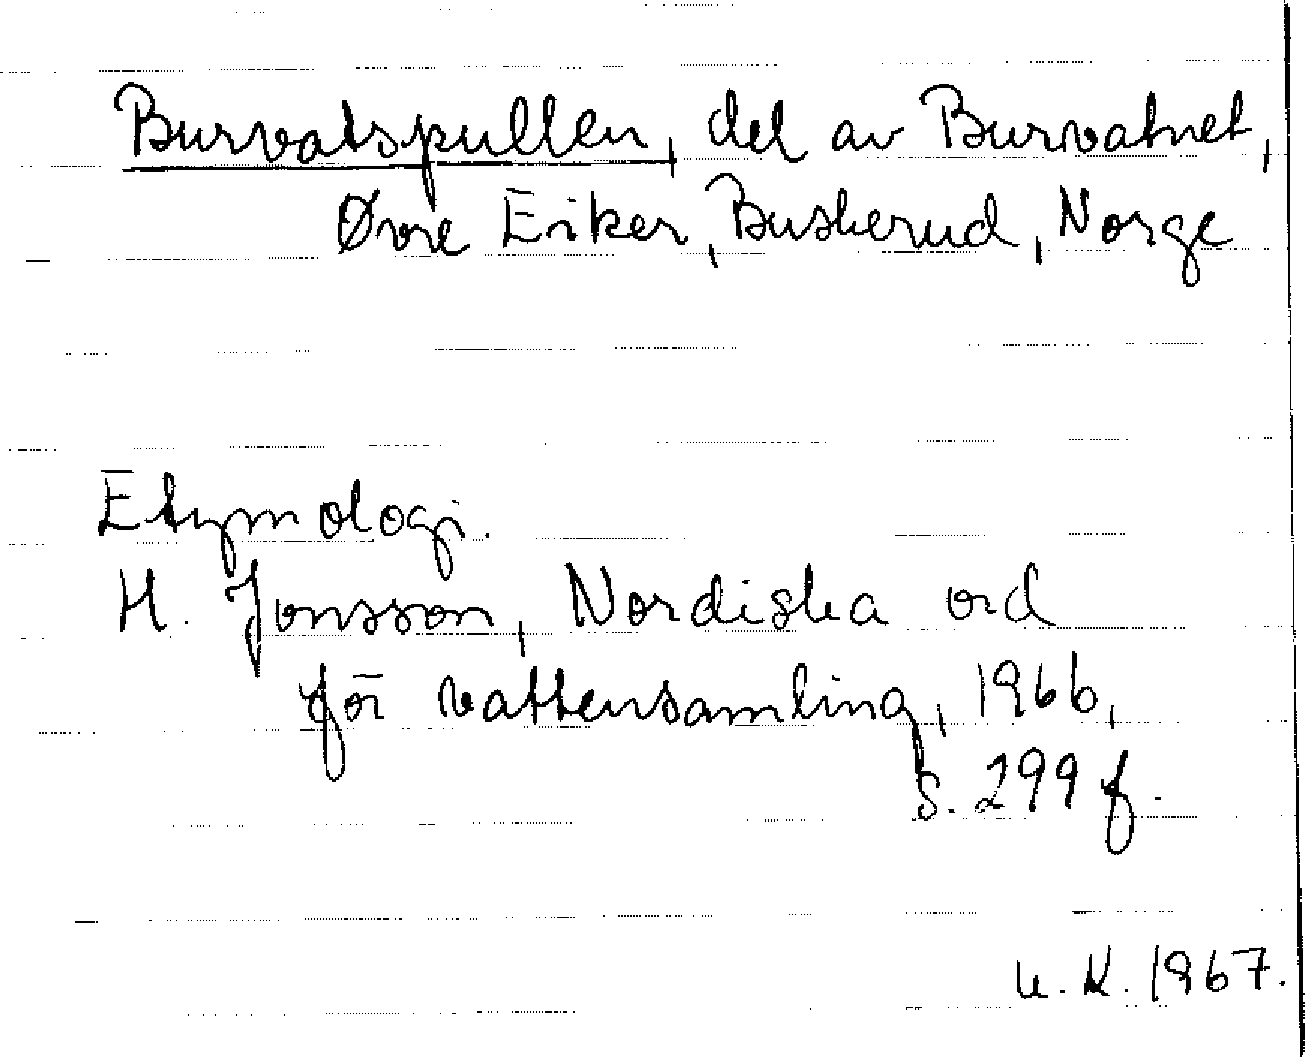 Burvatspullen, del av Burvatnet,
Øvre Eiker, Buskerud, Norge
Etymologi.
H. Jonsson, Nordiska ord
för vattensamling, 1966,
s. 299 f.
U.K. 1967.